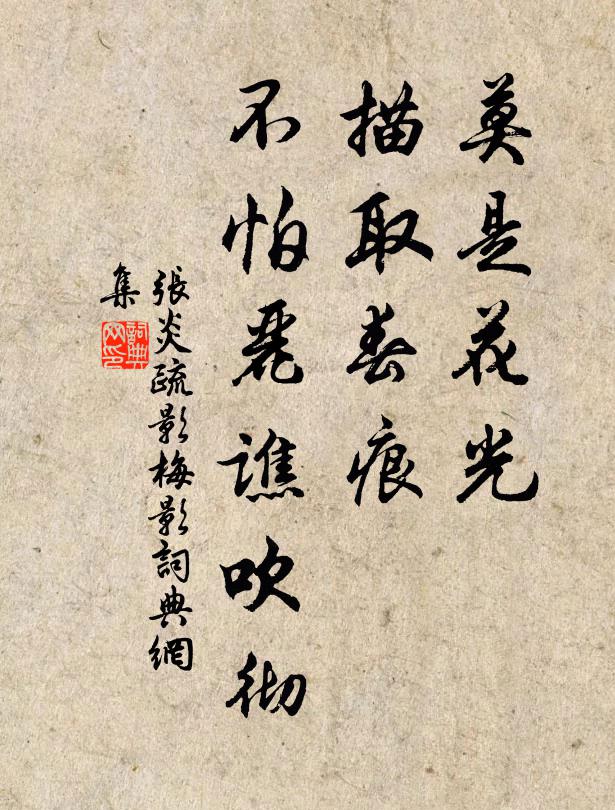 莫是花光
描取春痕
不怕麗譙吹徹
張炎疏影梅影詞典網
集
詞典网印